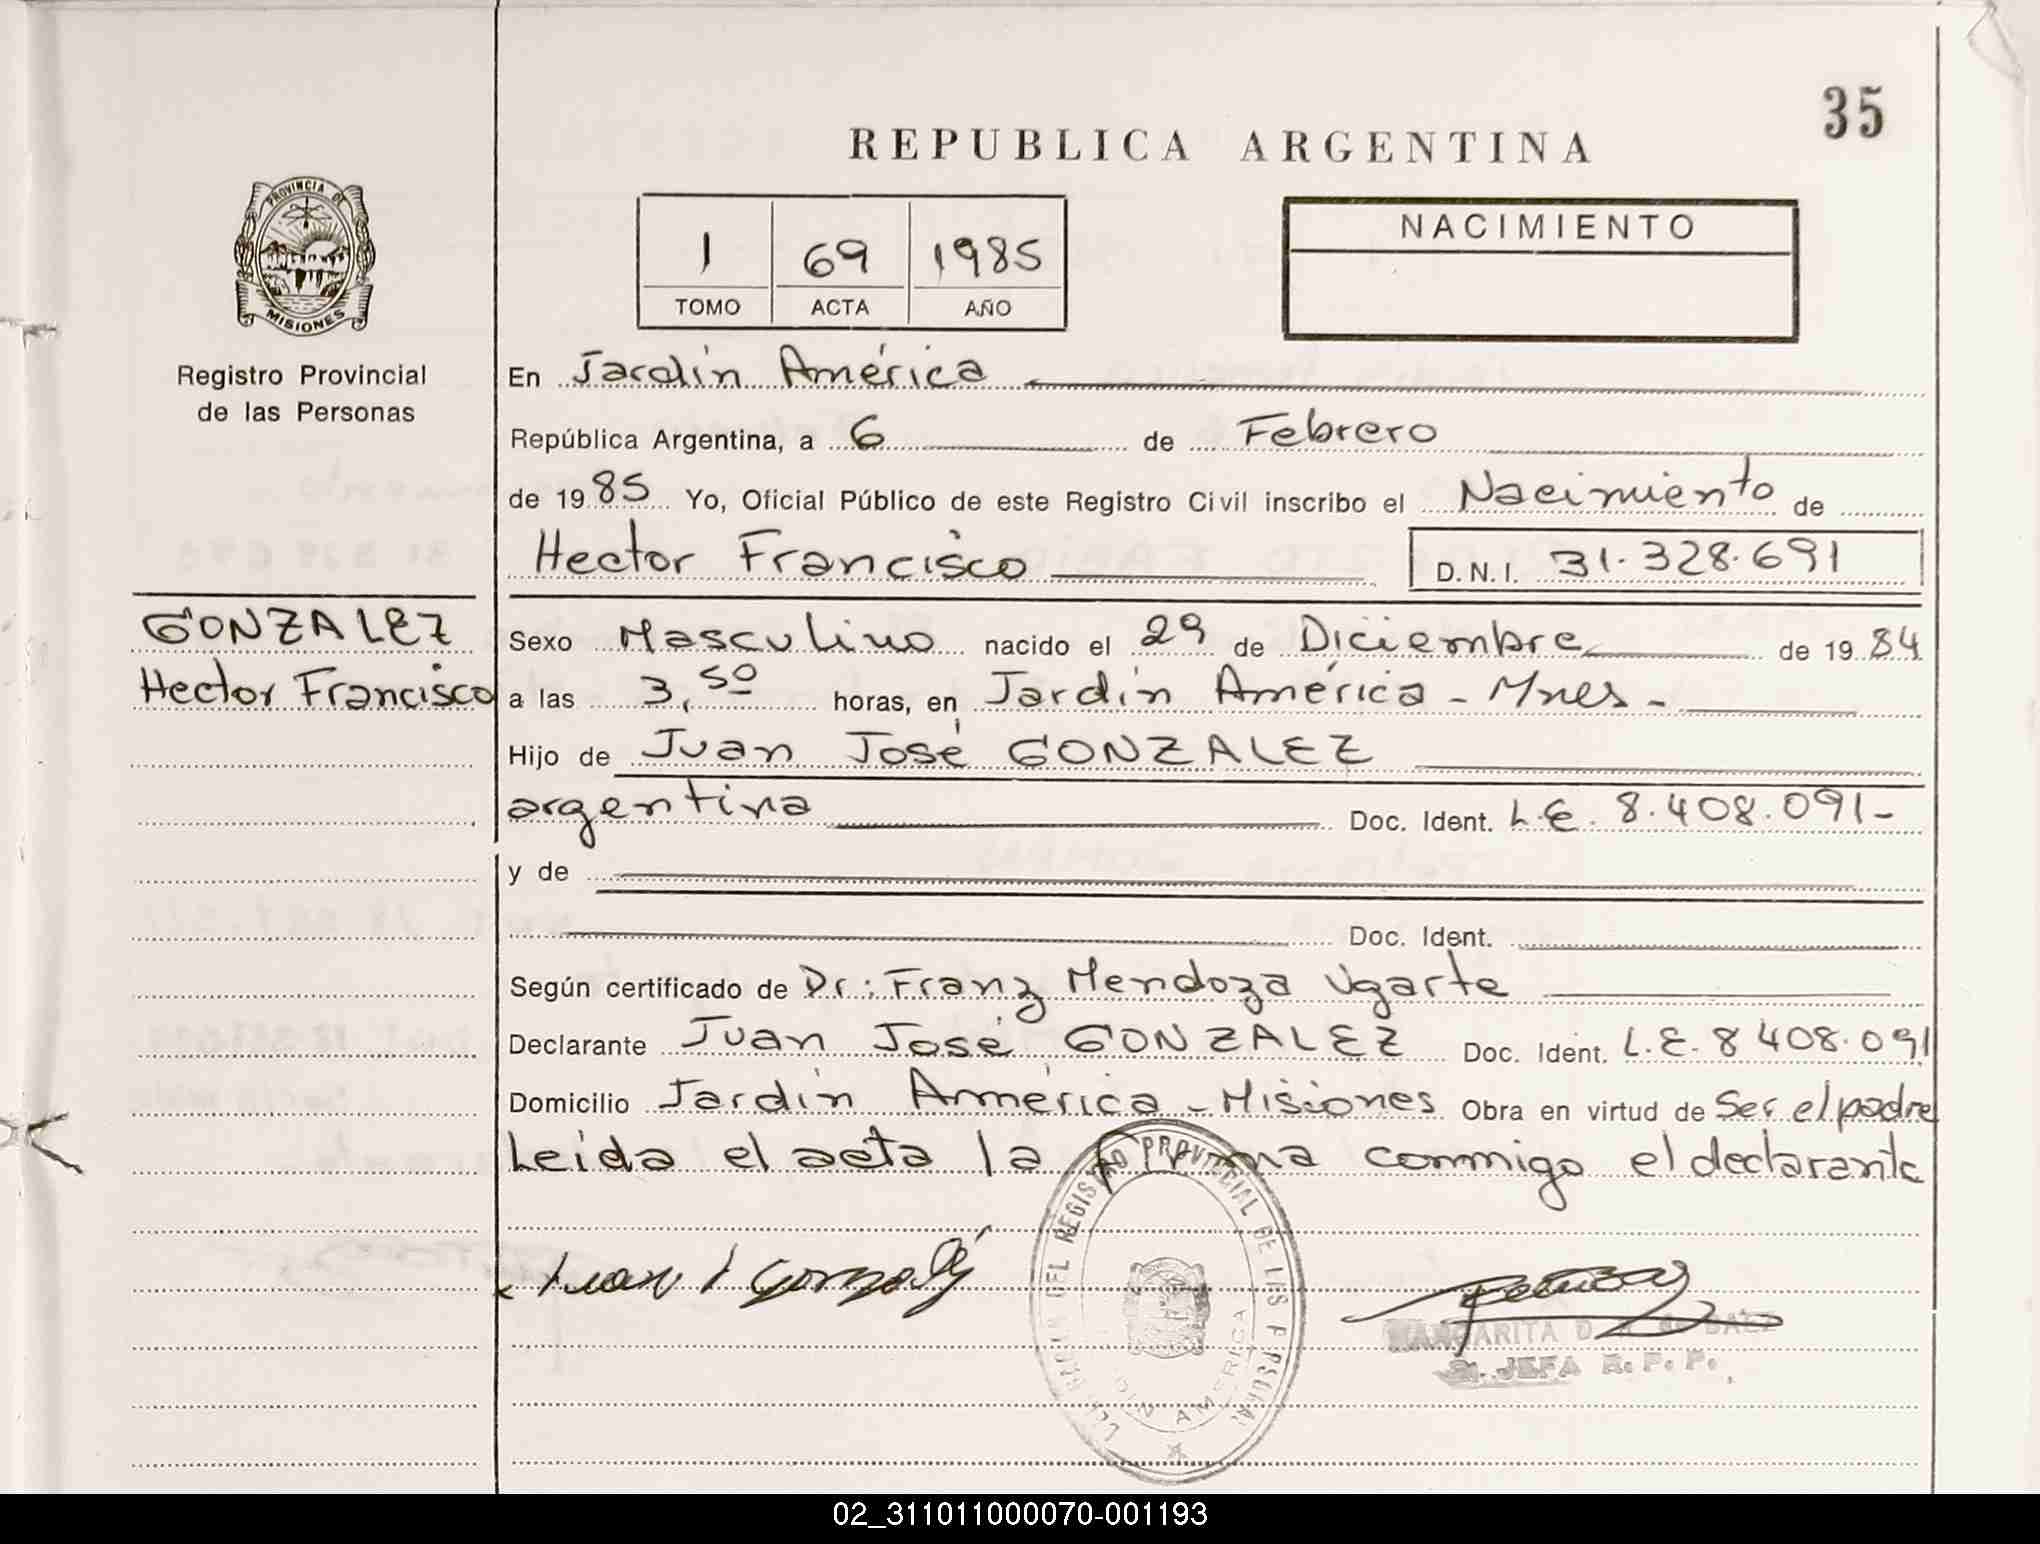 35
REPUBLICA ARGENTINA
PROVINCIA DE
MISIONES
1 69 1985
TOMO ACTA AÑO
NACIMIENTO
Registro Provincial
de las Personas
En Jardín América
República Argentina, a 6 de Febrero
de 1985 Yo, Oficial Público de este Registro Civil inscribo el Nacimiento de
Hector Francisco D.N.I. 31.328.691
GONZALEZ
Hector Francisco
Sexo Masculino nacido el 29 de Diciembre de 1984
a las 3,50 horas, en Jardín América - Mnes -
Hijo de Juan José GONZALEZ
argentina Doc. Ident. L.E. 8.408.091-
y de
Doc. Ident.
Según certificado de Dr: Franz Mendoza Ugarte
Declarante Juan José GONZALEZ Doc. Ident. L.E. 8 408.091
Domicilio Jardín América - Misiones Obra en virtud de Ser el padre
Leida el acta la firma conmigo el declarante
Juan J Gonzalez
DEL REGISTRO PROVINCIAL DE LAS PERSONAS
AMERICA
MARGARITA D. de BAEZ
JEFA R. P. P.
02_311011000070-001193